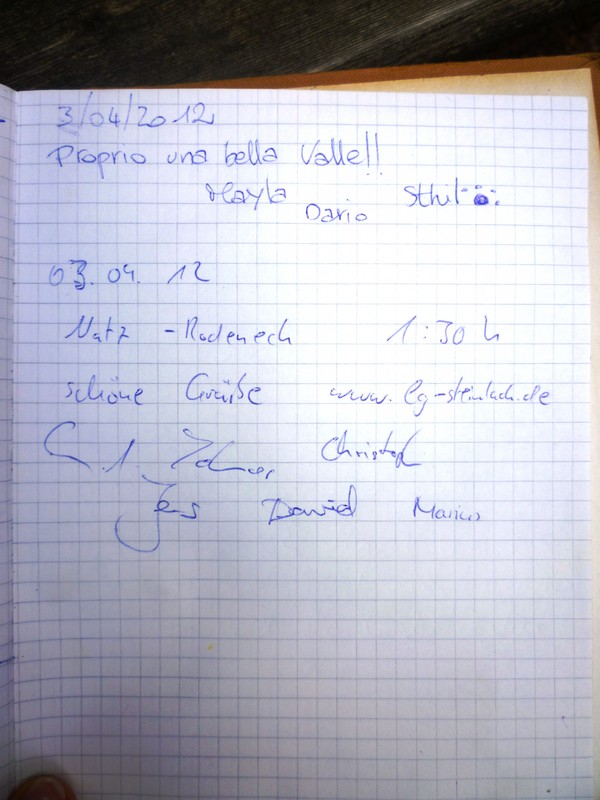 3/04/2012
Proprio una bella Valle!!
Mayla Dario
03.04.12
Natz - Rodeneck 1:30 h
schöne Grüße www.lg-steinlach.de
Christoph
Jens David Marius